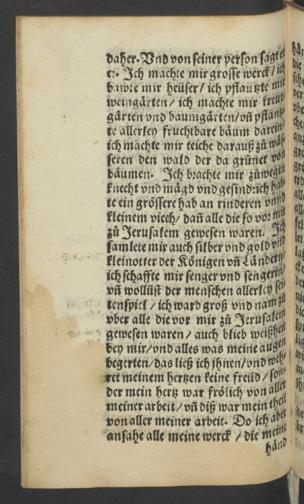 daher. Vnd von seiner person sagt er
e:. Jch machte mir grosse werck / ich
bawte mir heüser / ich pflantzte mir
weingärten / ich machte mir kreut
gärten vnd baumgärten / vñ pflantz
te allerley fruchtbare bäum darein /
ich machte mir teiche darauß zů wäs
seren den wald der da grünet von
bäumen. Jch brachte mir zůwegen
knecht vnd mägd vnd gesind: ich hat
te ein grössere hab an rinderen vnnd
kleinem viech / dañ alle die so vor mir
zů Jerusalem gewesen waren. Jch
samlete mir auch silber vnd gold vnd
kleinotter der Königen vñ Länderen
ich schaffte mir senger vnd sengerin /
vñ wollüst der menschen allerley sei
tenspiel / ich ward groß vnd nam zů
vber alle die vor mir zů Jerusalem
gewesen waren / auch blieb weißheit
bey mir / vnd alles was meine augen
begerten / das ließ ich jhnen / vnd weh
ret meinem hertzen keine freüd / son
der mein hertz war frölich von aller
meiner arbeit / vñ diß war mein theil
von aller meiner arbeit. Do ich aber
ansahe alle meine werck / die meine
händ